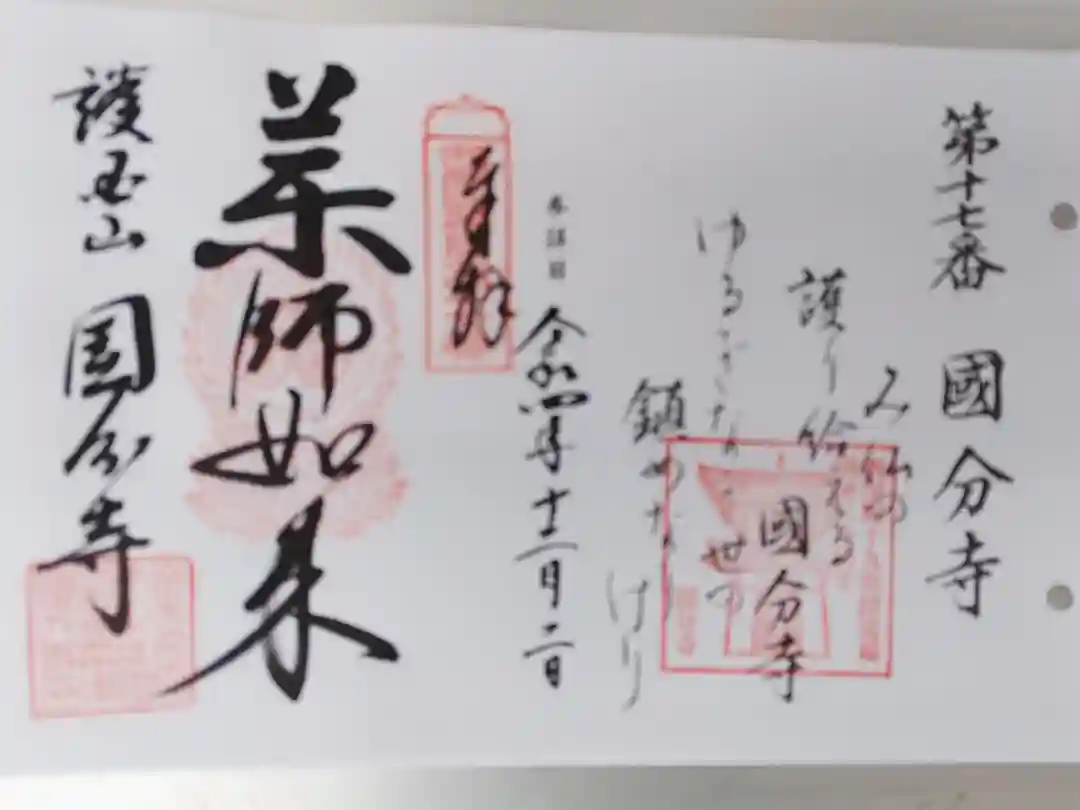 第十七番 國分寺
み仏の
護り給える
ゆるぎな 世の
鎮めなりけり
國分寺
参詣日
令和四年十二月二日
奉拝
薬師如来
護国山 国分寺